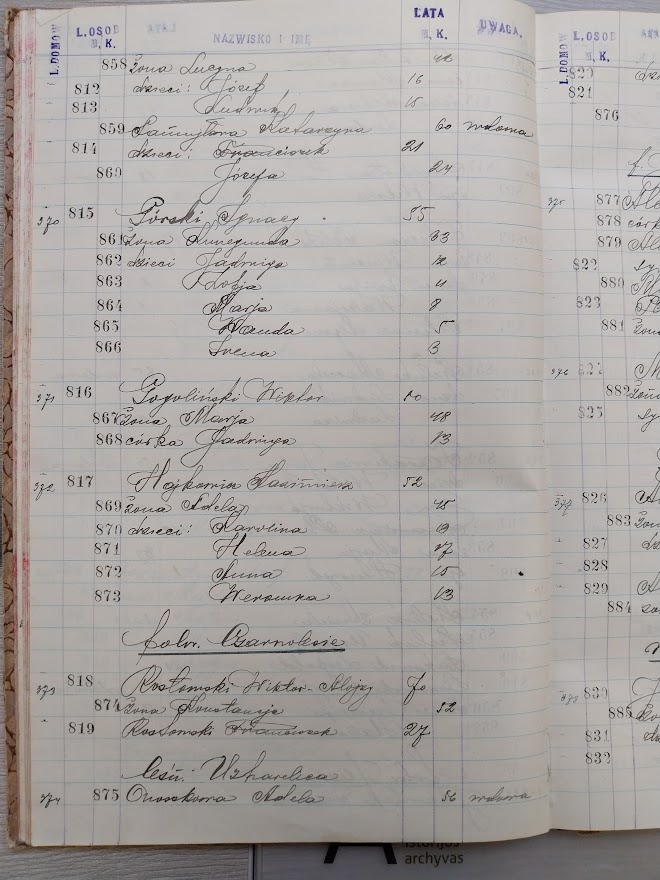 L. DOMÓW L. OSOB M. K. NAZWISKO I IMIĘ LATA M. K. UWAGA.
858 żona Lucyna 42
812 dzieci: Józef 16
813 Ludwik 15
859 Katarzyna 60 wdowa
814 dzieci: Franciszek 21
860 Józefa 24
370 815 Górski Ignacy 55
861 żona Kunegunda 33
862 dzieci Jadwiga 12
863 Zofja 11
864 Marja 8
865 Wanda 5
866 Irena 3
371 816 Pogoliński Wiktor 50
867 żona Marja 48
868 córka Jadwiga 13
372 817 Hajkowicz Kazimierz 52
869 żona Adela 45
870 dzieci: Karolina 19
871 Helena 17
872 Anna 15
873 Weronika 13
folw. Czarnolesie
373 818 Rostowski Wiktor-Alojzy 70
874 żona Konstancja 52
819 Rostowski Franciszek 27
374 875 Adela 56 wdowa
L. DOMÓW L. OSOB M. K.
820
821
876
375 877
878 córk
879
822
880
823
881
376
882
825
377 826
883
827
828
829
884
378 830
885
831
832
istorijos
archyvas